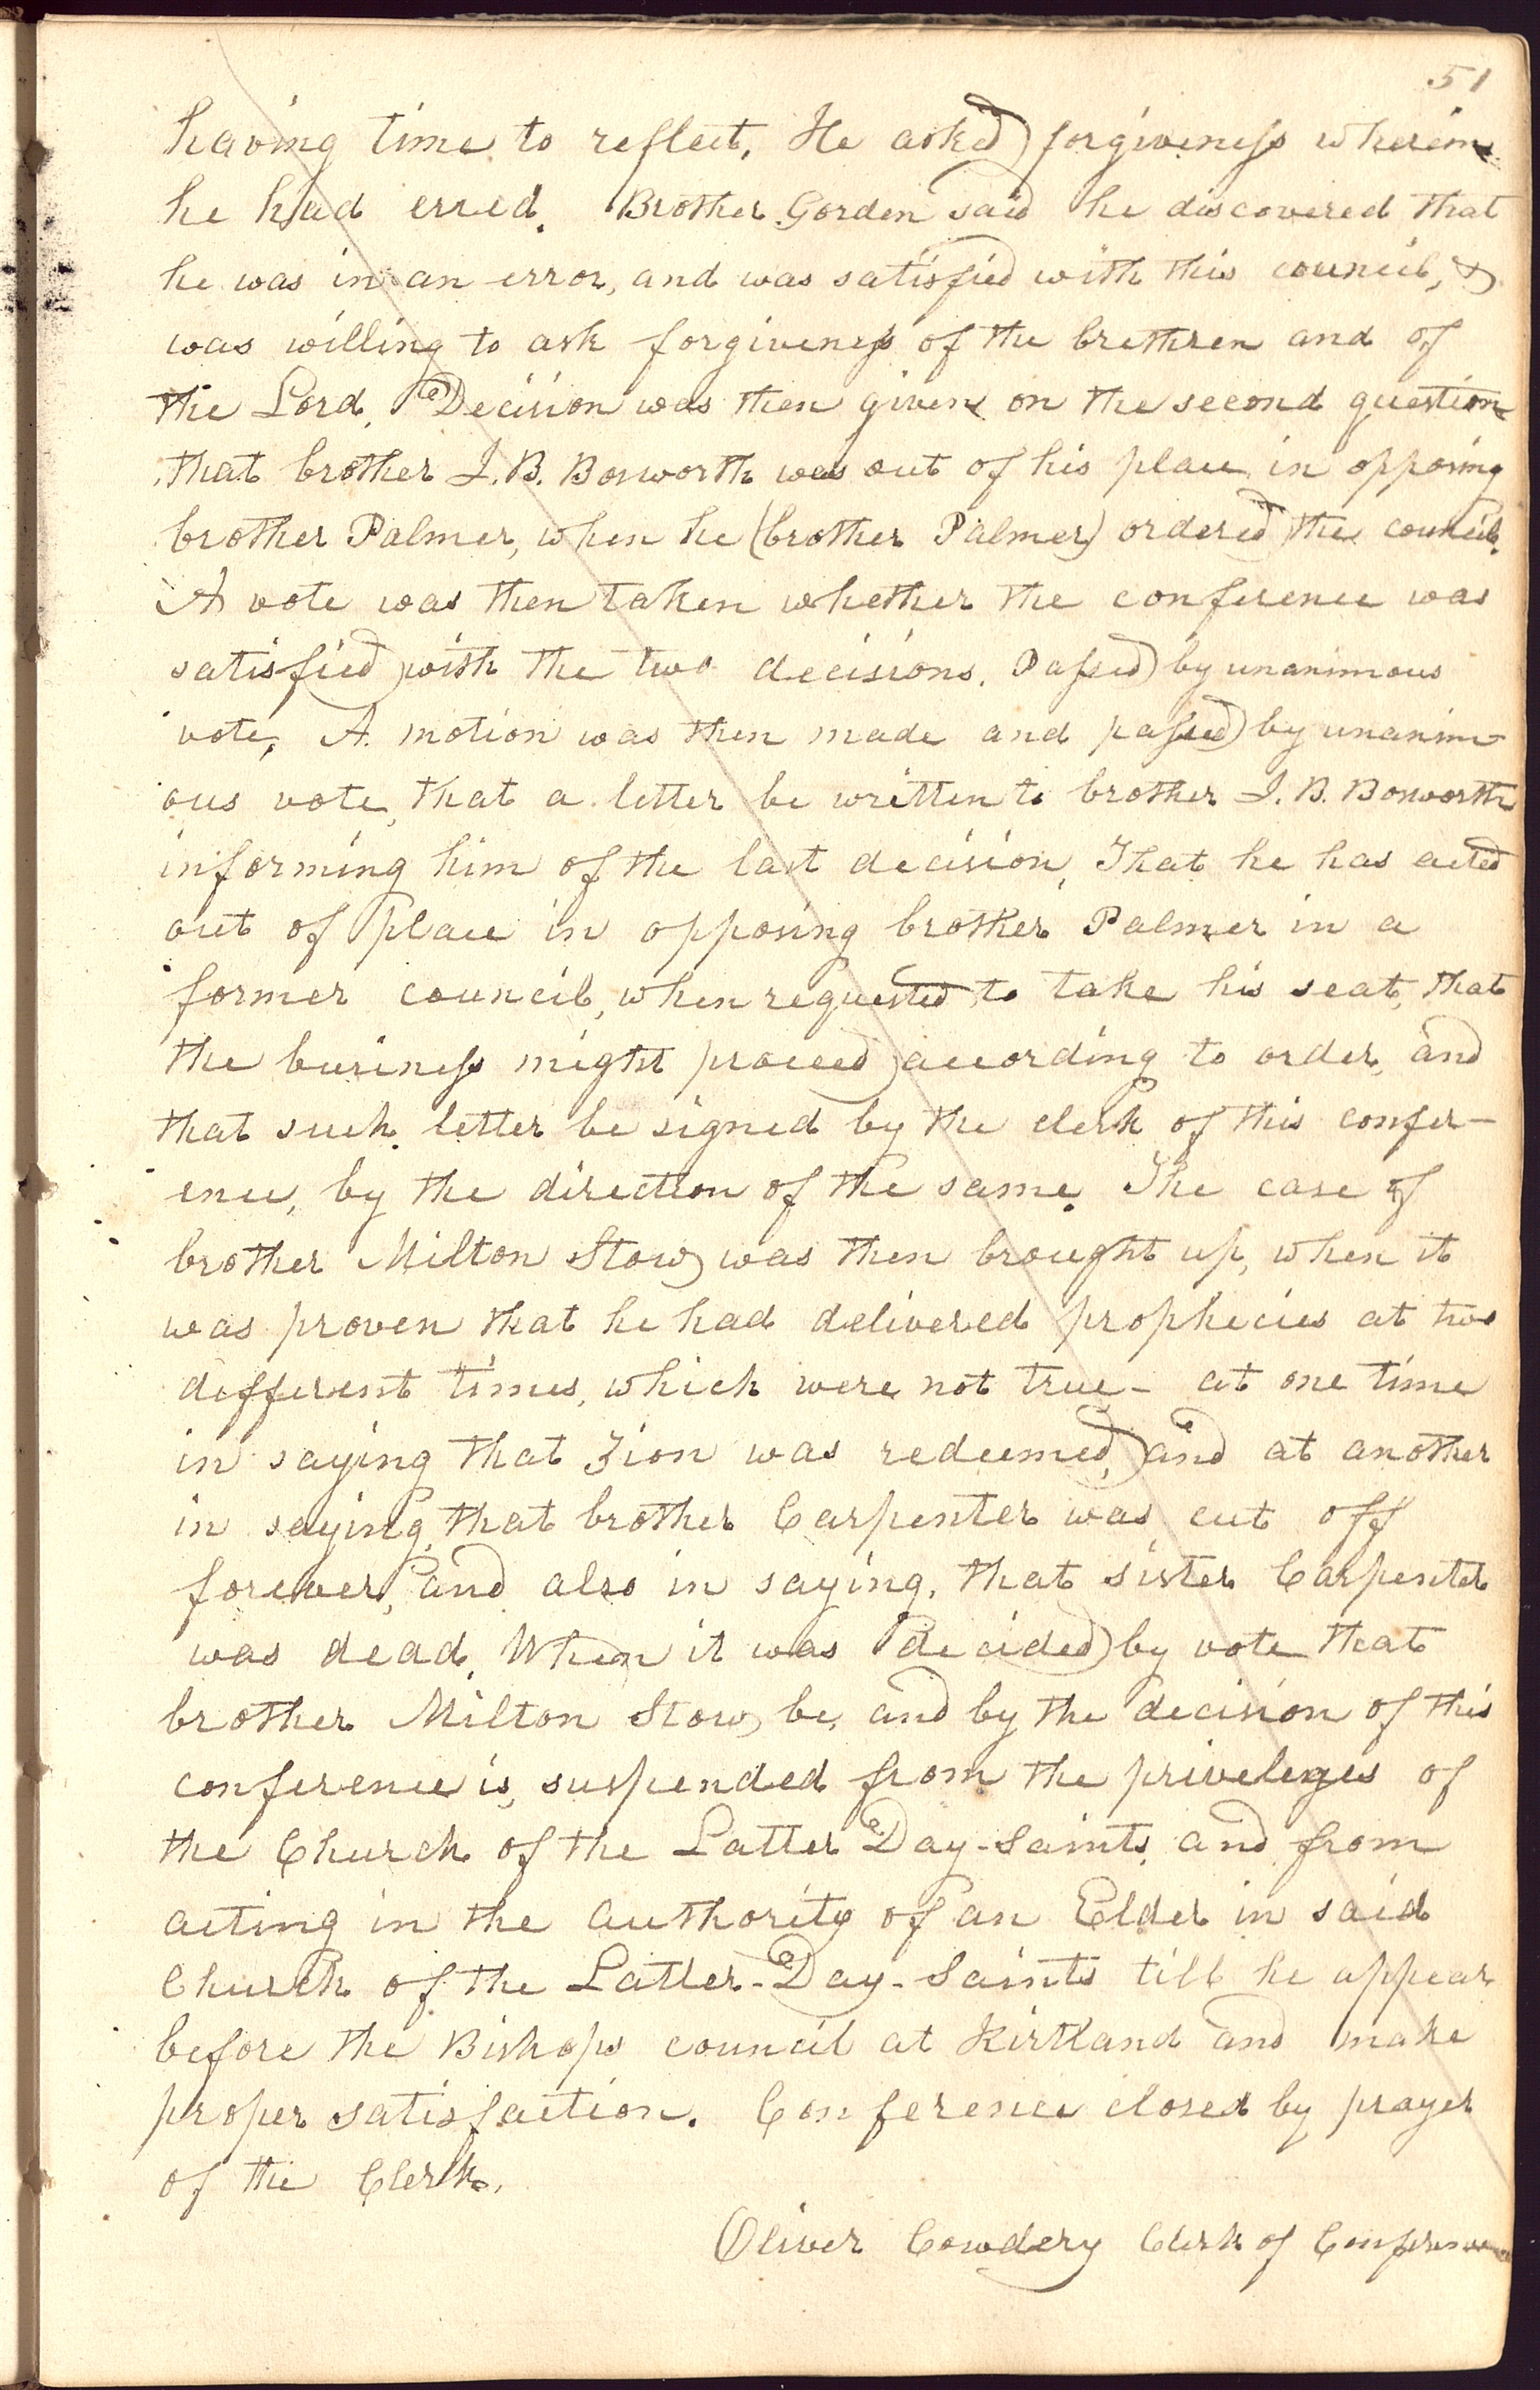 51
having time to reflect. He asked forgiveness wherein
he had erred. Brother Gorden said he discovered that
he was in an error, and was satisfied with this council, &
was willing to ask forgiveness of the brethren and of
the Lord. Decision was then given on the second question
that brother J. B. Bosworth was out of his place in opposing
brother Palmer, when he (brother Palmer) ordered the council.
A vote was then taken whether the conference was
satisfied with the two decisions. Passed by unanimous
vote, A motion was then made and passed by unanim-
ous vote, that a letter be written to brother J. B. Bosworth
informing him of the last decision, That he has acted
out of place in opposing brother Palmer in a
former council, when requested to take his seat, that
the business might proceed according to order, and
that such letter be signed by the clerk of this confer-
ence, by the direction of the same. The case of
brother Milton Stow was then brought up, when it
was proven that he had delivered prophecies at two
different times, which were not true- at one time
in saying that Zion was redeemed, and at another
in saying that brother Carpenter was cut off
forever, and also in saying, that sister Carpenter
was dead. When it was decided by vote that
brother Milton Stow, be, and by the decision of this
conference is, suspended from the priveleges of
the Church of the Latter Day-Saints, and from
acting in the authority of an Elder in said
Church of the Latter-Day-Saints till he appear
before the Bishops council at Kirtland and make
proper satisfaction. Conference closed by prayer
of the Clerk.
Oliver Cowdery Clerk of Conference